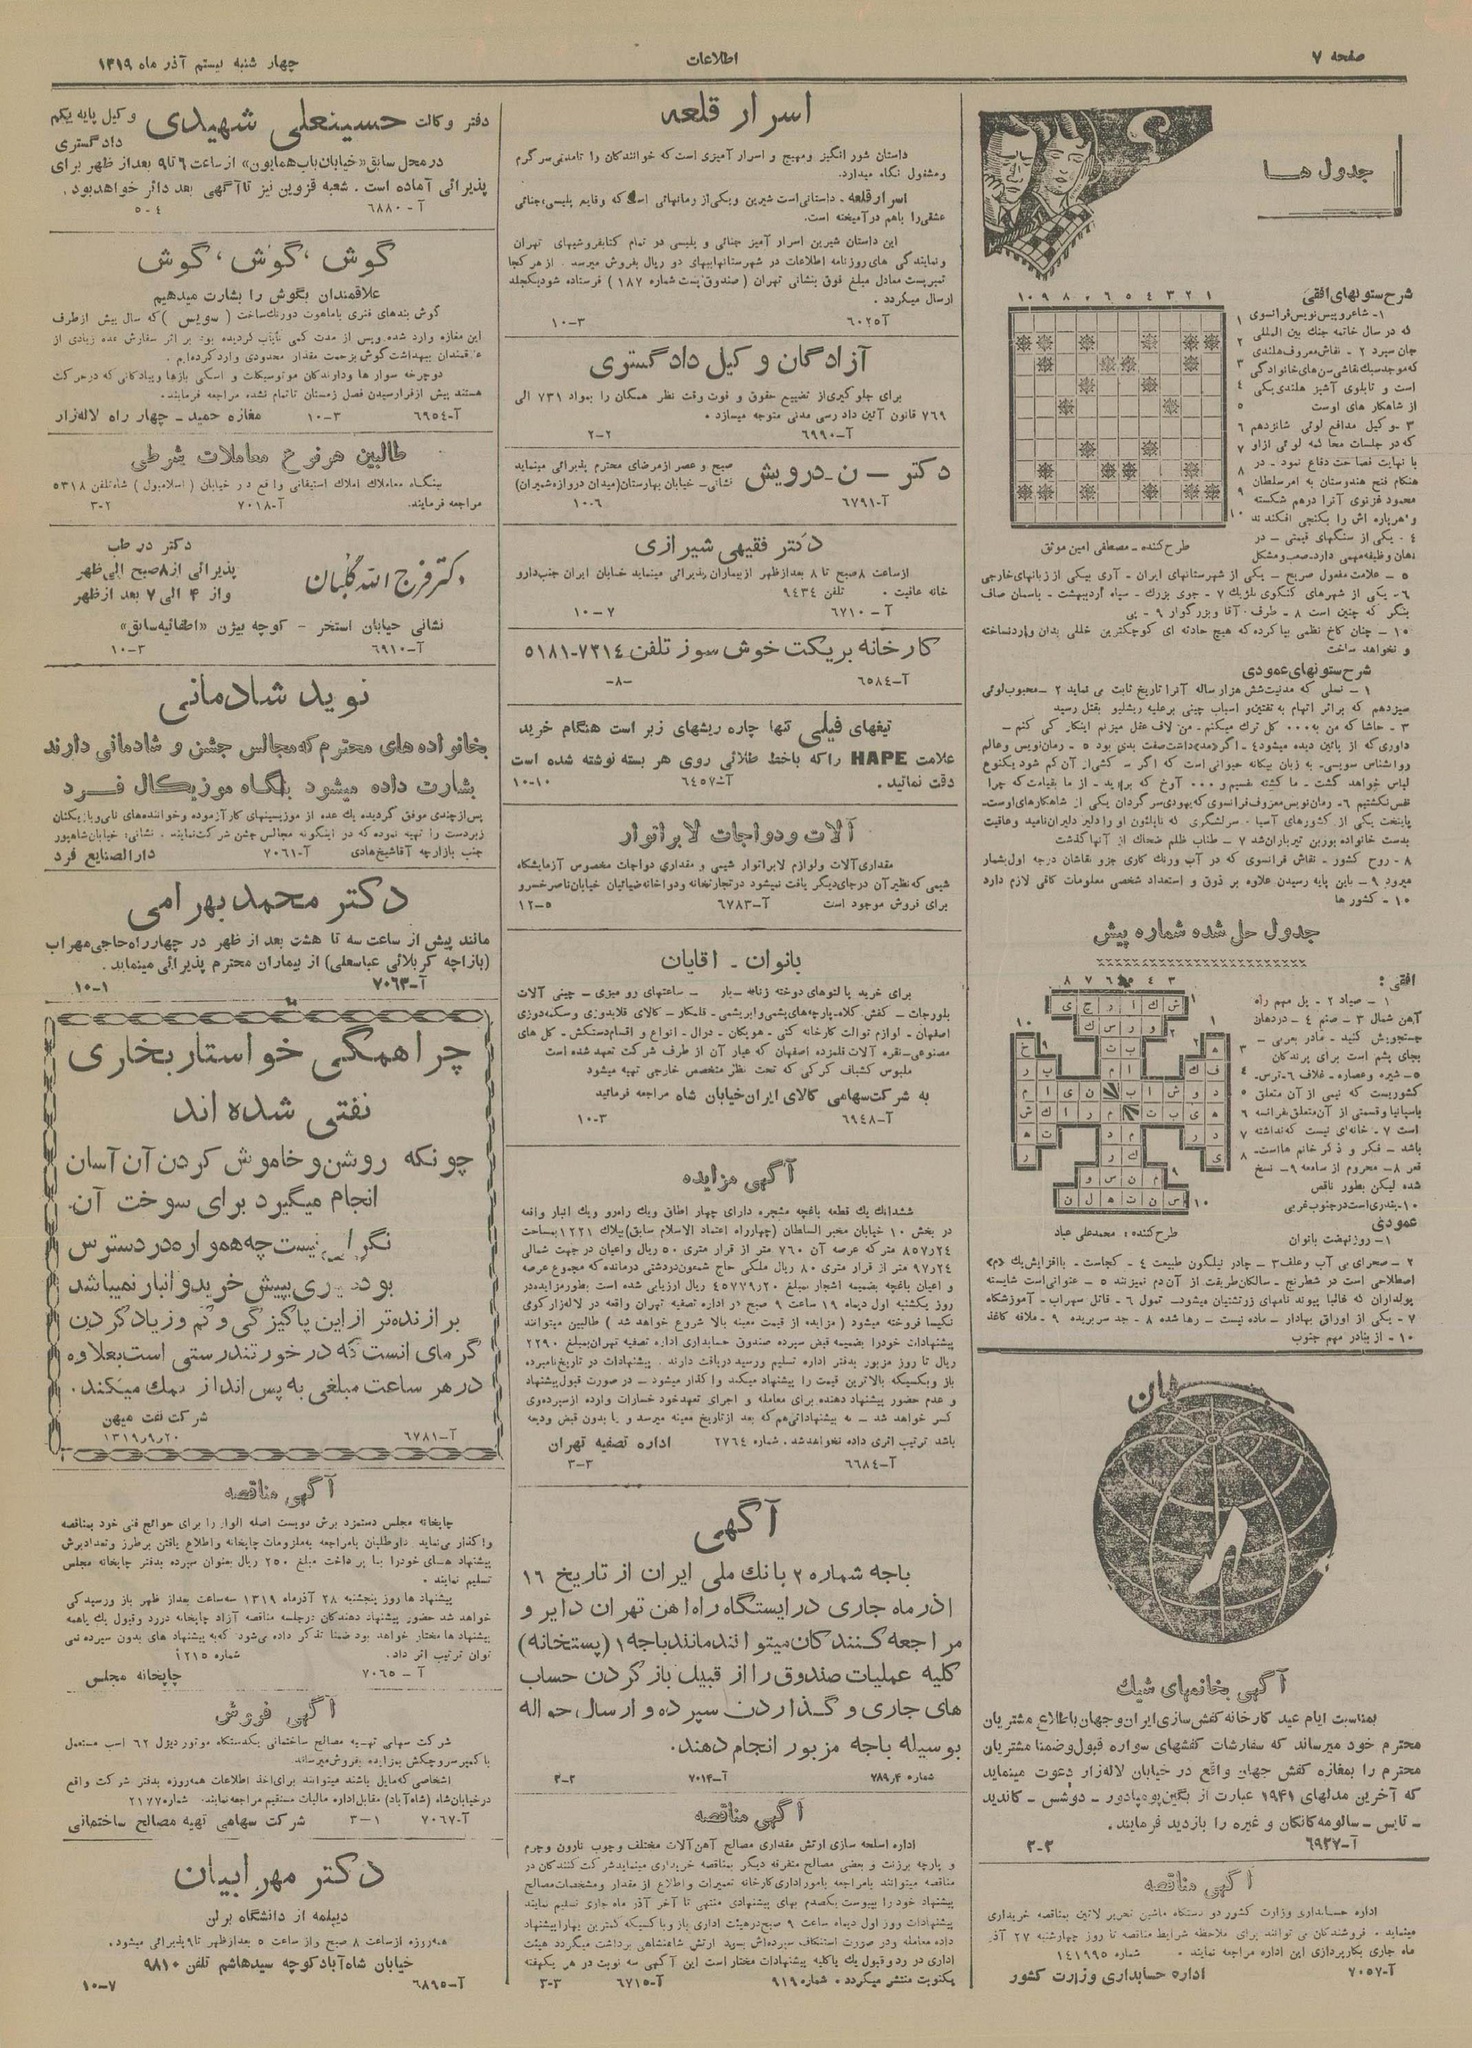 صفحه ۷
اطلاعات
چهار شنبه بیستم آذر ماه ۱۳۱۹
جدول ها
شرح ستونهای افقی
۱ـ شاعر و پیس نویس فرانسوی
که در سال خاتمه جنك بین المللی
جان سپرد ۲ ـ نقاش معروف هلندی
که موجد سبك نقاشی سن های خانوادگی
است و تابلوی آشپز هلندی یکی
از شاهکار های اوست
۳ ـ وکیل مدافع لوئی شانزدهم
که در جلسات محاکمه لوئی از او
با نهایت فصاحت دفاع نمود ـ در
هنگام فتح هندوستان به امر سلطان
محمود غزنوی آنرا درهم شکسته
و هرپاره اش را بکنجی افکندند
۴ ـ یکی از سنگهای قیمتی ـ در
دهان وظیفه مهمی دارد ـ صعب و مشکل
طرح کننده ـ مصطفی امین موثق
۵ ـ علامت مفعول صریح ـ یکی از شهرستانهای ایران ـ آری بیکی از زبانهای خارجی
۶ ـ یکی از شهرهای کنگوی بلژیك ۷ ـ جوی بزرك ـ سپاه اردیبهشت ـ باسمان صاف
بنگر که چنین است ۸ ـ طرف ـ آقا و بزرگوار ۹ ـ پی
۱۰ ـ چنان کاخ نظمی بپا کرده که هیچ حادثه ای کوچکترین خللی بدان وارد نساخته
و نخواهد ساخت
شرح ستونهای عمودی
۱ ـ نسلی که مدنیت شش هزار ساله آنرا تاریخ ثابت می نماید ۲ ـ محبوب لوئی
سیزدهم که براثر اتهام به تفتین و اسباب چینی برعلیه ریشلیو بقتل رسید
۳ ـ حاشا که من به ۰۰۰ گل ترك می‌کنم ـ من لاف عقل میزنم اینکار کی کنم ـ
داوری که از پائین دیده میشود ۴ ـ اگر (مد) داشت صفت بدی بود ۵ ـ رمان نویس و عالم
روانشناس سویسی ـ به زبان بیگانه حیوانی است که اگر سرکشی از آن کم شود یکنوع
لباس خواهد گشت ـ ما کشته نفسیم و ۰۰۰ آوخ که برآید ـ از ما بقیامت که چرا
نفس نکشتیم ۶ ـ رمان نویس معروف فرانسوی که یهودی سرگردان یکی از شاهکارهای اوست ـ
پایتخت یکی از کشورهای آسیا ـ سرلشگری که ناپلئون او را دلیر دلیران نامید و عاقبت
بدست خانواده بوربن تیرباران شد ۷ ـ طناب ظلم ضحاك از آنها گذشت
۸ ـ روح کشور ـ نقاش فرانسوی که در آب و رنك کاری جزو نقاشان درجه اول بشمار
میرود ۹ ـ باین پایه رسیدن علاوه بر ذوق و استعداد شخصی معلومات کافی لازم دارد
۱۰ ـ کشور ها
جدول حل شده شماره پیش
افقی :
۱ ـ صیاد ۲ ـ پل مهم راه
آهن شمال ۳ ـ صنم ۴ ـ در دهان
جستجویش کنید ـ مادر بعربی ـ
بجای پشم است برای پرندگان
۵ ـ شیره و عصاره ـ غلاف ۶ ـ ترس ـ
کشوریست که نیمی از آن متعلق
باسپانیا و قسمتی از آن متعلق بفرانسه
است ۷ ـ خانه‌ای نیست که نداشته
باشد ـ فکر و ذکر خانم هااست ـ
قعر ۸ ـ محروم از سامعه ۹ ـ نسخ
شده لیکن بطور ناقص
۱۰ ـ بندری است در جنوب غربی
عمودی
۱ ـ روز نهضت بانوان
طرح کننده : محمدعلی عباد
۲ ـ صحرای بی آب و علف ۳ ـ چادر نیلگون طبیعت ۴ ـ کجاست ـ باافزایش یك «م»
اصطلاحی است در شطرنج ـ سالکان طریقت از آن دم نمیزنند ۵ ـ عنوانی است شایسته
پولداران که غالبا پیوند نامهای زرتشتیان میشود ـ تمول ۶ ـ قاتل سهراب ـ آموزشگاه
۷ ـ یکی از اوراق بهادار ـ ماده نیست ـ رها شده ۸ ـ جد سربریده ۹ ـ ملافه کاغذ
۱۰ ـ از بنادر مهم جنوب
آگهی بخانمهای شیك
بمناسبت ایام عید کارخانه کفش سازی ایران و جهان باطلاع مشتریان
محترم خود میرساند که سفارشات کفشهای سواره قبول و ضمنا مشتریان
محترم را بمغازه کفش جهان واقع در خیابان لاله‌زار دعوت مینماید
که آخرین مدلهای ۱۹۴۱ عبارت از بگین پومپادور ـ دوشس ـ کاندید
ـ تایس ـ سالومه کانکان و غیره را بازدید فرمایند.
آ-۶۹۳۷ ۲-۲
آگهی مناقصه
اداره حسابداری وزارت کشور دو دستگاه ماشین تحریر لاتین بمناقصه خریداری
مینماید ۰ فروشندگان می توانند برای ملاحظه شرایط مناقصه تا روز چهارشنبه ۲۷ آذر
ماه جاری بکارپردازی این اداره مراجعه نمایند ۰ شماره ۱۴۱۹۹۵
آ-۷۰۵۷ اداره حسابداری وزارت کشور
اسرار قلعه
داستان شور انگیز و مهیج و اسرار آمیزی است که خوانندگان را تا مدتی سرگرم
و مشغول نگاه میدارد.
اسرار قلعه ـ داستانی است شیرین و یکی از رمانهائی است که وقایع پلیسی، جنائی
عشقی را باهم درآمیخته است.
این داستان شیرین اسرار آمیز جنائی و پلیسی در تمام کتابفروشیهای تهران
و نمایندگی های روزنامه اطلاعات در شهرستانها ببهای دو ریال بفروش میرسد ۰ از هر کجا
تمبر پست معادل مبلغ فوق بنشانی تهران (صندوق پست شماره ۱۸۷) فرستاده شود یکجلد
ارسال میگردد ۰
آ-۶۰۲۵ ۱۰-۳
آزادگان وکیل دادگستری
برای جلوگیری از تضییع حقوق و فوت وقت نظر همگان را بمواد ۷۳۱ الی
۷۶۹ قانون آئین دادرسی مدنی متوجه میسازد ۰
آ-۶۹۹۰ ۲-۲
دکتر ـ ن ـ درویش صبح و عصر از مرضای محترم پذیرائی مینماید
نشانی ـ خیابان بهارستان (میدان دروازه شمیران)
آ-۶۷۹۱ ۱۰-۶
دکتر فقیهی شیرازی
از ساعت ۸ صبح تا ۸ بعدازظهر از بیماران پذیرائی مینماید خیابان ایران جنب دارو
خانه عافیت ۰ تلفن ۹۴۳۴
آ-۶۷۱۰ ۱۰-۷
کارخانه بریکت خوش سوز تلفن ۷۳۱۴-۵۱۸۱
آ-۶۵۸۴ -۸-
تیغهای فیلی تنها چاره ریشهای زبر است هنگام خرید
علامت HAPE را که باخط طلائی روی هر بسته نوشته شده است
دقت نمائید. آ-۶۴۵۷ ۱۰-۱۰
آلات و دواجات لابراتوار
مقداری آلات و لوازم لابراتوار شیمی و مقداری دواجات مخصوص آزمایشگاه
شیمی که نظیر آن در جای دیگر یافت نمیشود در تجارتخانه و دواخانه ضیائیان خیابان ناصرخسرو
برای فروش موجود است آ-۶۷۸۳ ۱۲-۵
بانوان ـ اقایان
برای خرید پالتوهای دوخته زنانه ـ بار ـ ساعتهای رو میزی ـ چینی آلات
بلورجات ـ کفش کلاه ـ پارچه های پشمی و ابریشمی ـ قلمکار ـ کالای قلابدوزی و سکمه دوزی
اصفهان ـ لوازم توالت کارخانه کتی ـ هوبگان ـ درال ـ انواع و اقسام دستکش ـ گل های
مصنوعی ـ نقره آلات قلمزده اصفهان که عیار آن از طرف شرکت تعهد شده است
ملبوس کشباف کرکی که تحت نظر متخصص خارجی تهیه میشود
به شرکت سهامی کالای ایران خیابان شاه مراجعه فرمائید
آ-۶۹۴۸ ۱۰-۳
آگهی مزایده
ششدانك یك قطعه باغچه مشجره دارای چهار اطاق و یك راهرو و یك انبار واقعه
در بخش ۱۰ خیابان مخبر السلطان (چهارراه اعتماد الاسلام سابق) پلاك ۱۲۲۱ بمساحت
۸۵۷٫۲۴ متر که عرصه آن ۷۶۰ متر از قرار متری ۵۰ ریال و اعیان در جهت شمالی
۹۷٫۲۴ متر از قرار متری ۸۰ ریال ملکی حاج شمعون دردشتی درمانده که مجموع عرصه
و اعیان باغچه بضمیمه اشجار بمبلغ ۴۵۷۷۹٫۲۰ ریال ارزیابی شده است بطور مزایده در
روز یکشنبه اول دیماه ۱۹ ساعت ۹ صبح در اداره تصفیه تهران واقعه در لاله‌زار کوی
نکیسا فروخته میشود (مزایده از قیمت معینه بالا شروع خواهد شد) طالبین میتوانند
پیشنهادات خود را بضمیمه قبض سپرده صندوق حسابداری اداره تصفیه تهران بمبلغ ۲۲۹۰
ریال تا روز مزبور بدفتر اداره تسلیم و رسید دریافت دارند . پیشنهادات در تاریخ نامبرده
باز و بکسیکه بالاترین قیمت را پیشنهاد میکند واگذار میشود ـ در صورت قبول پیشنهاد
و عدم حضور پیشنهاد دهنده برای معامله و اجرای تعهد خود خسارات وارده از سپرده‌وی
کسر خواهد شد ـ به پیشنهاداتی هم که بعد از تاریخ معینه میرسد و یا بدون قبض ودیعه
باشد ترتیب اثری داده نخواهد شد. شماره ۲۷۶۴ اداره تصفیه تهران
آ-۶۶۸۴ ۳-۳
آگهی
باجه شماره ۲ بانك ملی ایران از تاریخ ۱۶
اذر ماه جاری در ایستگاه راه اهن تهران دایر و
مراجعه کنندگان میتوانند مانند باجه ۱ (پستخانه)
کلیه عملیات صندوق را از قبیل باز کردن حساب
های جاری و گذاردن سپرده و ارسال حواله
بوسیله باجه مزبور انجام دهند.
شماره ۷۸۹٫۴ آ-۷۰۱۴ ۳-۲
آگهی مناقصه
اداره اسلحه سازی ارتش مقداری مصالح آهن آلات مختلف و چوب نارون و چرم
و پارچه برزنت و بعضی مصالح متفرقه دیگر بمناقصه خریداری مینماید شرکت کنندگان در
مناقصه میتوانند بامراجعه بامور اداری کارخانه تعمیرات و اطلاع از مقدار و مشخصات مصالح
پیشنهاد خود را بپیوست یکصدم بهای پیشنهادی منتهی تا آخر آذر ماه جاری تسلیم نمایند
پیشنهادات روز اول دیماه ساعت ۹ صبح در هیئت اداری باز و باکسیکه کمترین بها را پیشنهاد
داده معامله و در صورت استنکاف سپرده‌اش بسود ارتش شاهنشاهی برداشت میگردد هیئت
اداری در رد و قبول یك یا کلیه پیشنهادات مختار است این آگهی سه نوبت در هر یکهفته
یکنوبت منتشر میگردد ۰ شماره ۹۱۹ آ-۶۷۱۵ ۳-۳
دفتر وکالت حسینعلی شهیدی وکیل پایه یکم
دادگستری
در محل سابق «خیابان باب همایون» از ساعت ۶ تا ۹ بعد از ظهر برای
پذیرائی آماده است . شعبه قزوین نیز تا آگهی بعد دائر خواهد بود .
آ-۶۸۸۰ ۵-۴
گوش ، گوش ، گوش
علاقمندان بگوش را بشارت میدهیم
گوش بندهای فنری باماهوت دورنك ساخت (سویس) که سال پیش از طرف
این مغازه وارد شده و پس از مدت کمی نایاب گردیده بود بر اثر سفارش عده زیادی از
علاقمندان ببهداشت گوش بزحمت مقدار محدودی وارد کرده‌ایم .
دوچرخه سوار ها و دارندگان موتوسیکلت و اسکی بازها و پیادگانی که در حرکت
هستند پیش از فرارسیدن فصل زمستان تا تمام نشده مراجعه فرمایند.
آ-۶۹۵۴ ۱۰-۳ مغازه حمید ـ چهار راه لاله‌زار
طالبین هر نرخ معاملات شرطی
ببنگاه معاملات املاك استیفانی واقع در خیابان (اسلامبول) شاه تلفن ۵۳۱۸
مراجعه فرمایند. آ-۷۰۱۸ ۳-۲
دکتر فرج الله گلبان
دکتر در طب
پذیرائی از ۸ صبح الی ظهر
و از ۴ الی ۷ بعد از ظهر
نشانی خیابان استخر ـ کوچه بیژن «اطفائیه سابق»
آ-۶۹۱۰ ۱۰-۳
نوید شادمانی
بخانواده‌های محترم که مجالس جشن و شادمانی دارند
بشارت داده میشود بنگاه موزیکال فرد
پس از چندی موفق گردیده یك عده از موزیسینهای کارآزموده و خواننده‌های نامی و بازیکنان
زبردست را تهیه نموده که در اینگونه مجالس جشن شرکت نمایند. نشانی: خیابان شاهپور
جنب بازارچه آقا شیخ هادی آ-۷۰۶۱ دارالصنایع فرد
دکتر محمد بهرامی
مانند پیش از ساعت سه تا هشت بعد از ظهر در چهارراه حاجی مهراب
(بازارچه کربلائی عباسعلی) از بیماران محترم پذیرائی مینماید.
آ-۷۰۶۳ ۱۰-۱
چرا همگی خواستار بخاری
نفتی شده اند
چونکه روشن و خاموش کردن آن آسان
انجام میگیرد برای سوخت آن
نگرانی نیست چه همواره در دسترس
بوده پیش خرید و انبار نمیباشد
برازنده‌تر از این پاکیزگی و کم و زیاد کردن
گرمای انست که در خور تندرستی است بعلاوه
در هر ساعت مبلغی به پس انداز کمك میکند.
شرکت نفت میهن
آ-۶۷۸۱ ۲۰ر۹ر۱۳۱۹
آگهی مناقصه
چاپخانه مجلس دستمزد برش دویست اصله الوار را برای حوائج فنی خود بمناقصه
واگذار می‌نماید داوطلبان بامراجعه به ملزومات چاپخانه و اطلاع یافتن بر طرز و تعداد برش
پیشنهاد های خود را با پرداخت مبلغ ۲۵۰ ریال بعنوان سپرده بدفتر چاپخانه مجلس
تسلیم نمایند ۰
پیشنهاد ها روز پنجشنبه ۲۸ آذرماه ۱۳۱۹ سه ساعت بعد از ظهر باز و رسیدگی
خواهد شد حضور پیشنهاد دهندگان در جلسه مناقصه آزاد چاپخانه در رد و قبول یك یا همه
پیشنهاد ها مختار خواهد بود ضمنا تذکر داده می‌شود که به پیشنهاد های بدون سپرده نمی
توان ترتیب اثر داد. شماره ۱۲۱۵
آ-۷۰۶۵ چاپخانه مجلس
آگهی فروش
شرکت سهامی تهیه مصالح ساختمانی یکدستگاه موتور دیزل ۶۲ اسب مستعمل
با کمپرسور و چکش بمزایده بفروش میرساند
اشخاصی که مایل باشند میتوانند برای اخذ اطلاعات همه روزه بدفتر شرکت واقع
در خیابان شاه (شاه‌آباد) مقابل اداره مالیات مستقیم مراجعه نمایند. شماره ۲۱۷۷
آ-۷۰۶۷ ۳-۱ شرکت سهامی تهیه مصالح ساختمانی
دکتر مهرابیان
دیپلمه از دانشگاه برلن
همه روزه از ساعت ۸ صبح و از ساعت ۵ بعد از ظهر تا ۹ پذیرائی میشود.
خیابان شاه‌آباد کوچه سیدهاشم تلفن ۹۸۱۰
آ-۶۸۹۵ ۱۰-۷